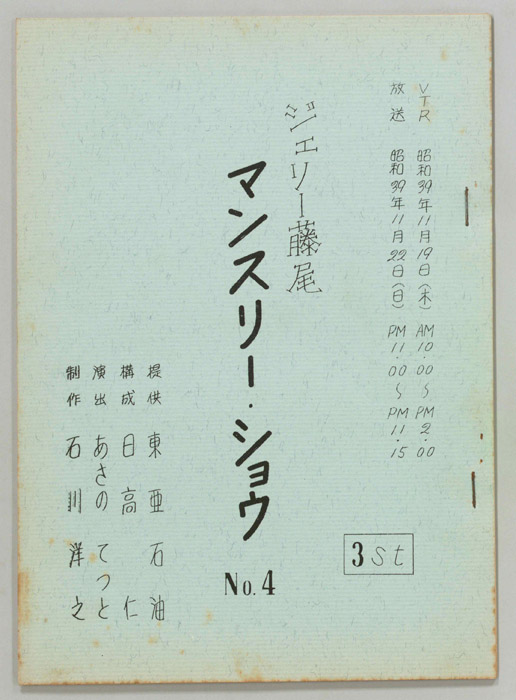 VTR 昭和39年11月19日(木) AM10.00~PM2.00
放送 昭和39年11月22日(日) PM11.00~PM11.15
ジェリー藤尾
マンスリー・ショウ
No.4
3st
提供 東亜石油
構成 日高仁
演出 あさのてつと
制作 石川洋之